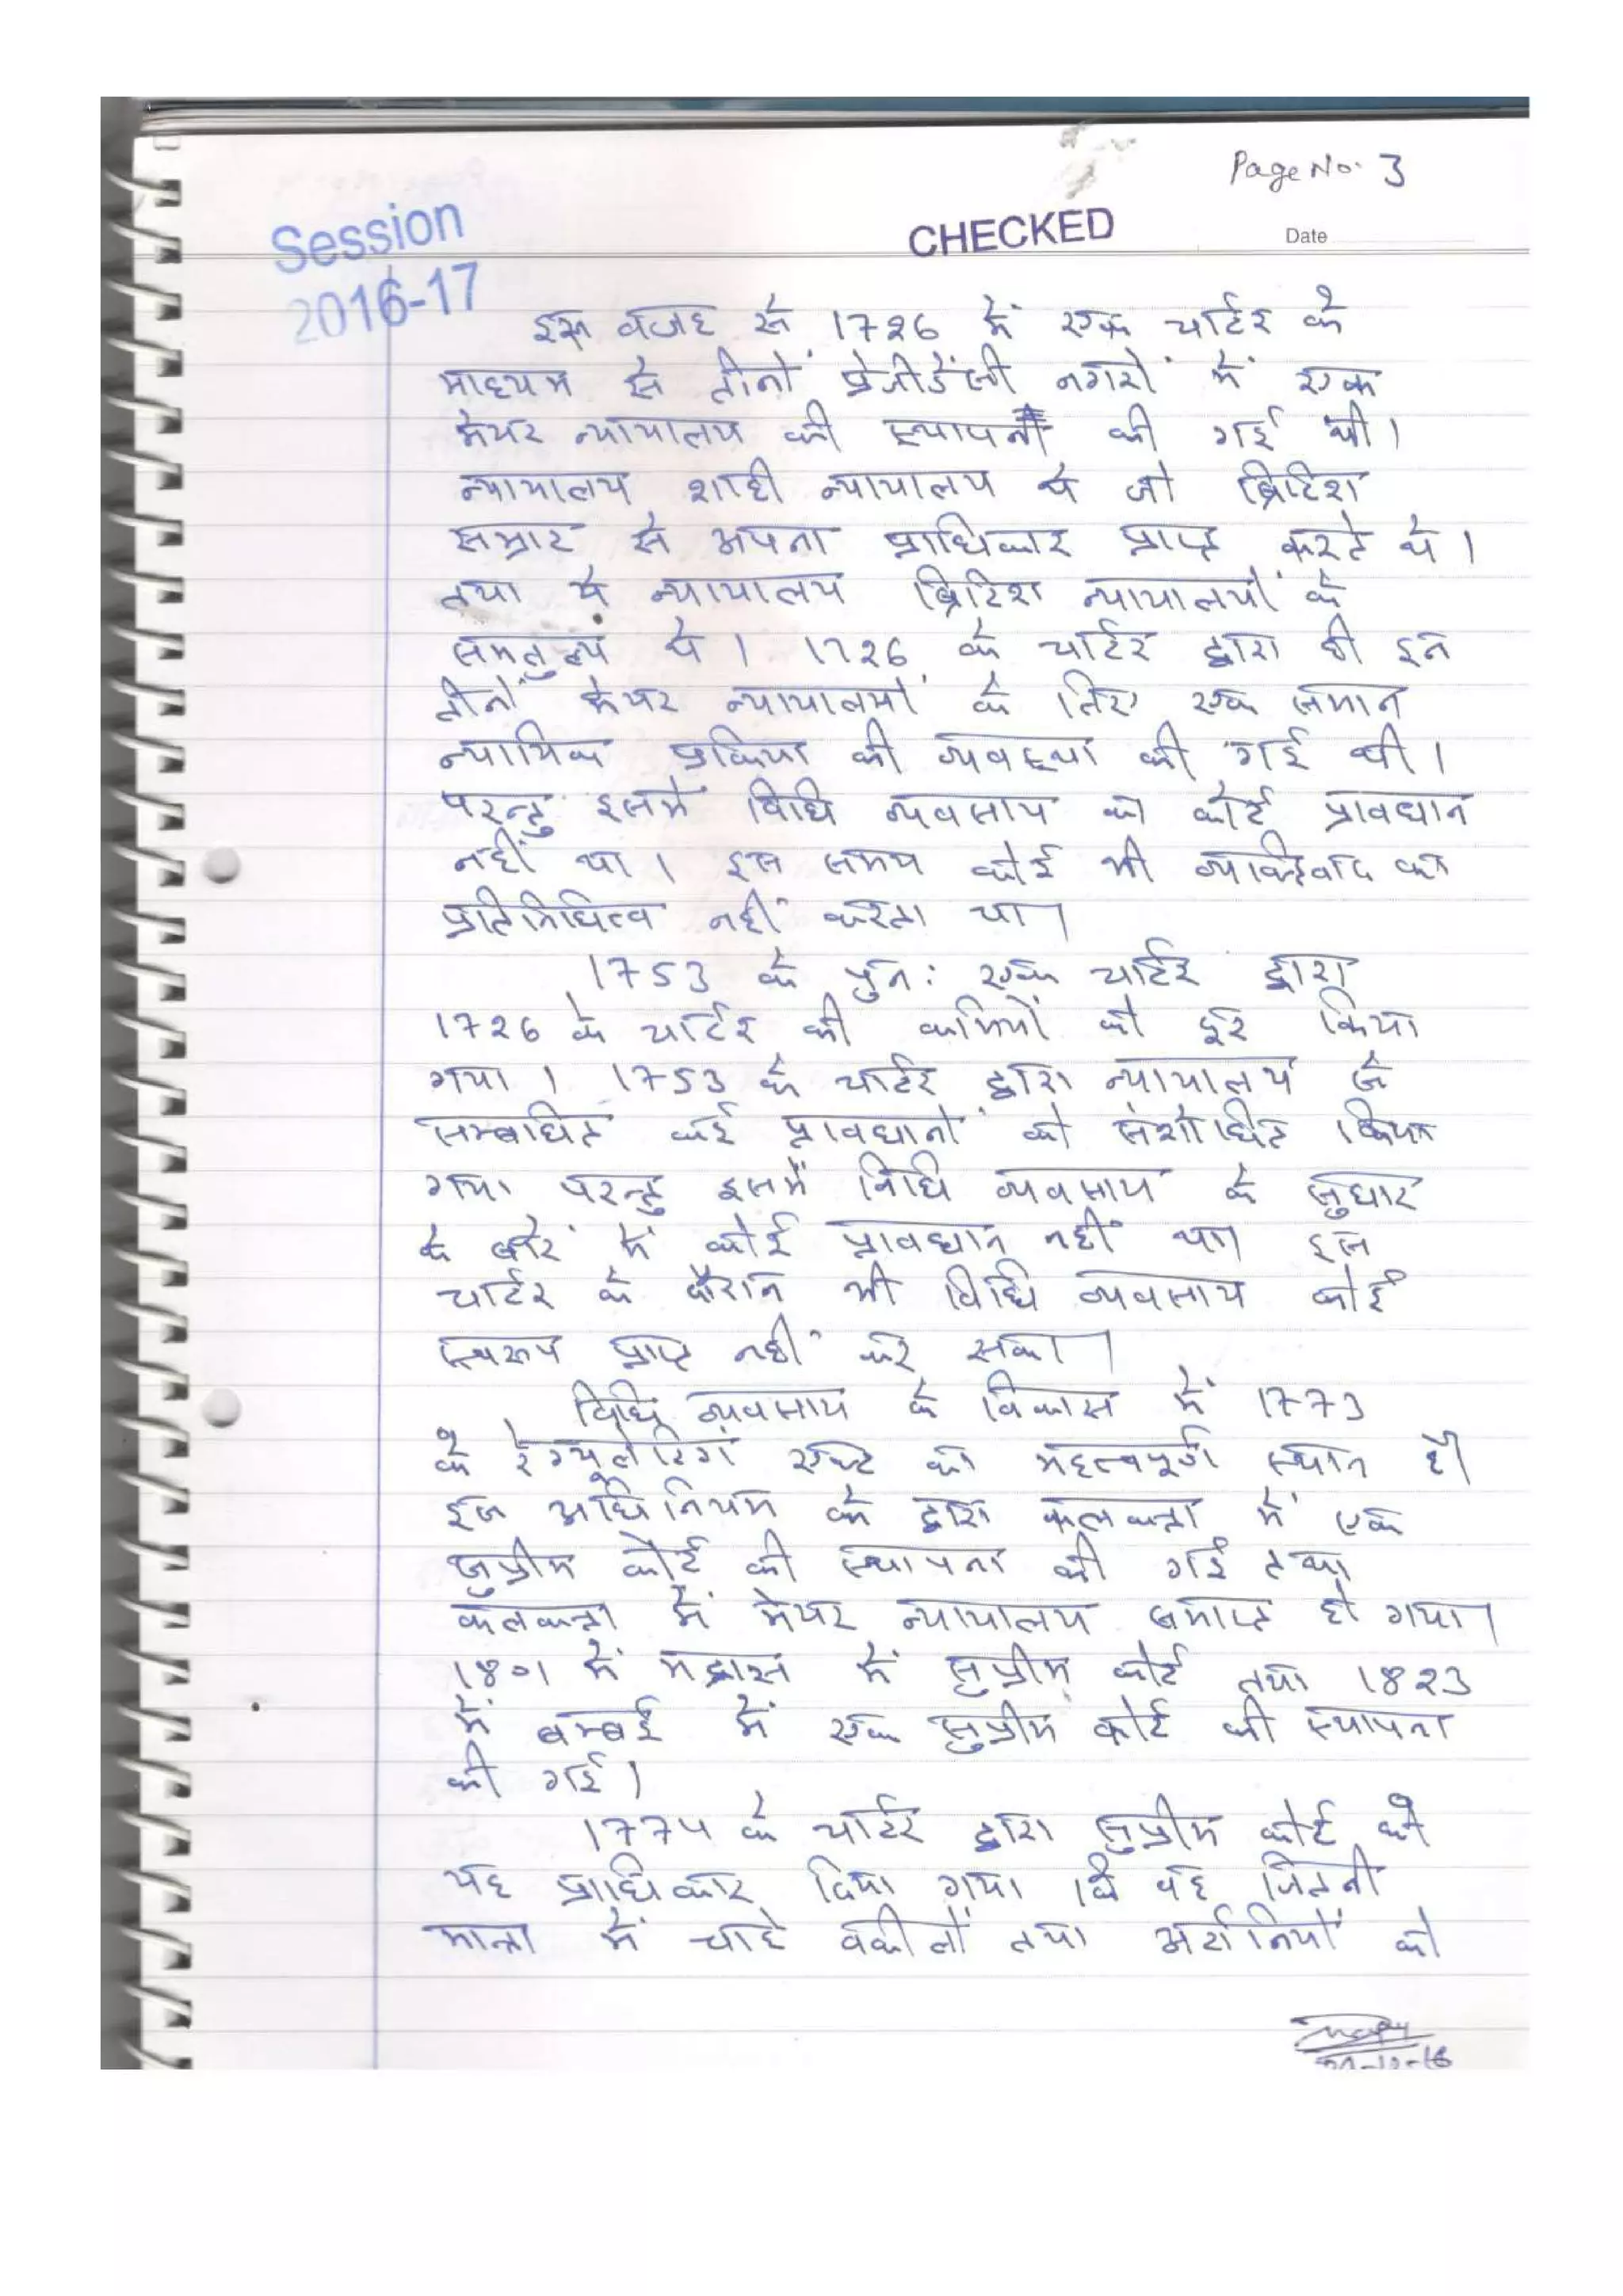 Page No. 3
Session
2016-17
CHECKED
Date
इस वजह से 1726 में एक चार्टर के
माध्यम से तीनों प्रेजीडेंसी नगरों में एक
मेयर न्यायालय की स्थापना की गई थी।
न्यायालय शाही न्यायालय थे जो ब्रिटिश
सम्राट से अपना प्राधिकार प्राप्त करते थे।
तथा ये न्यायालय ब्रिटिश न्यायालयों के
समतुल्य थे। 1726 के चार्टर द्वारा ही इन
तीनों मेयर न्यायालयों के लिए एक समान
न्यायिक प्रक्रिया की व्यवस्था की गई थी।
परन्तु इसमें विधि व्यवसाय का कोई प्रावधान
नहीं था। इस समय कोई भी व्यक्ति वाद का
प्रतिनिधित्व नहीं करता था।
1753 के पुन: एक चार्टर द्वारा
1726 के चार्टर की कमियों को दूर किया
गया। 1753 के चार्टर द्वारा न्यायालय से
सम्बधित कई प्रावधानों को संशोधित किया
गया परन्तु इसमें विधि व्यवसाय के सुधार
के बारे में कोई प्रावधान नहीं था। इस
चार्टर के दौरान भी विधि व्यवसाय कोई
स्वरूप प्राप्त नहीं कर सका।
विधि व्यवसाय के विकास में 1773
के रेग्यूलेटिंग एक्ट का महत्वपूर्ण स्थान है।
इस अधिनियम के द्वारा कलकत्ता में एक
सुप्रीम कोर्ट की स्थापना की गई तथा
कलकत्ता में मेयर न्यायालय समाप्त हो गया।
1801 में मद्रास में सुप्रीम कोर्ट तथा 1823
में बम्बई में एक सुप्रीम कोर्ट की स्थापना
की गई।
1774 के चार्टर द्वारा सुप्रीम कोर्ट को
यह प्राधिकार दिया गया कि वह जितनी
मात्रा में चाहे वकीलों तथा अटार्नियों को